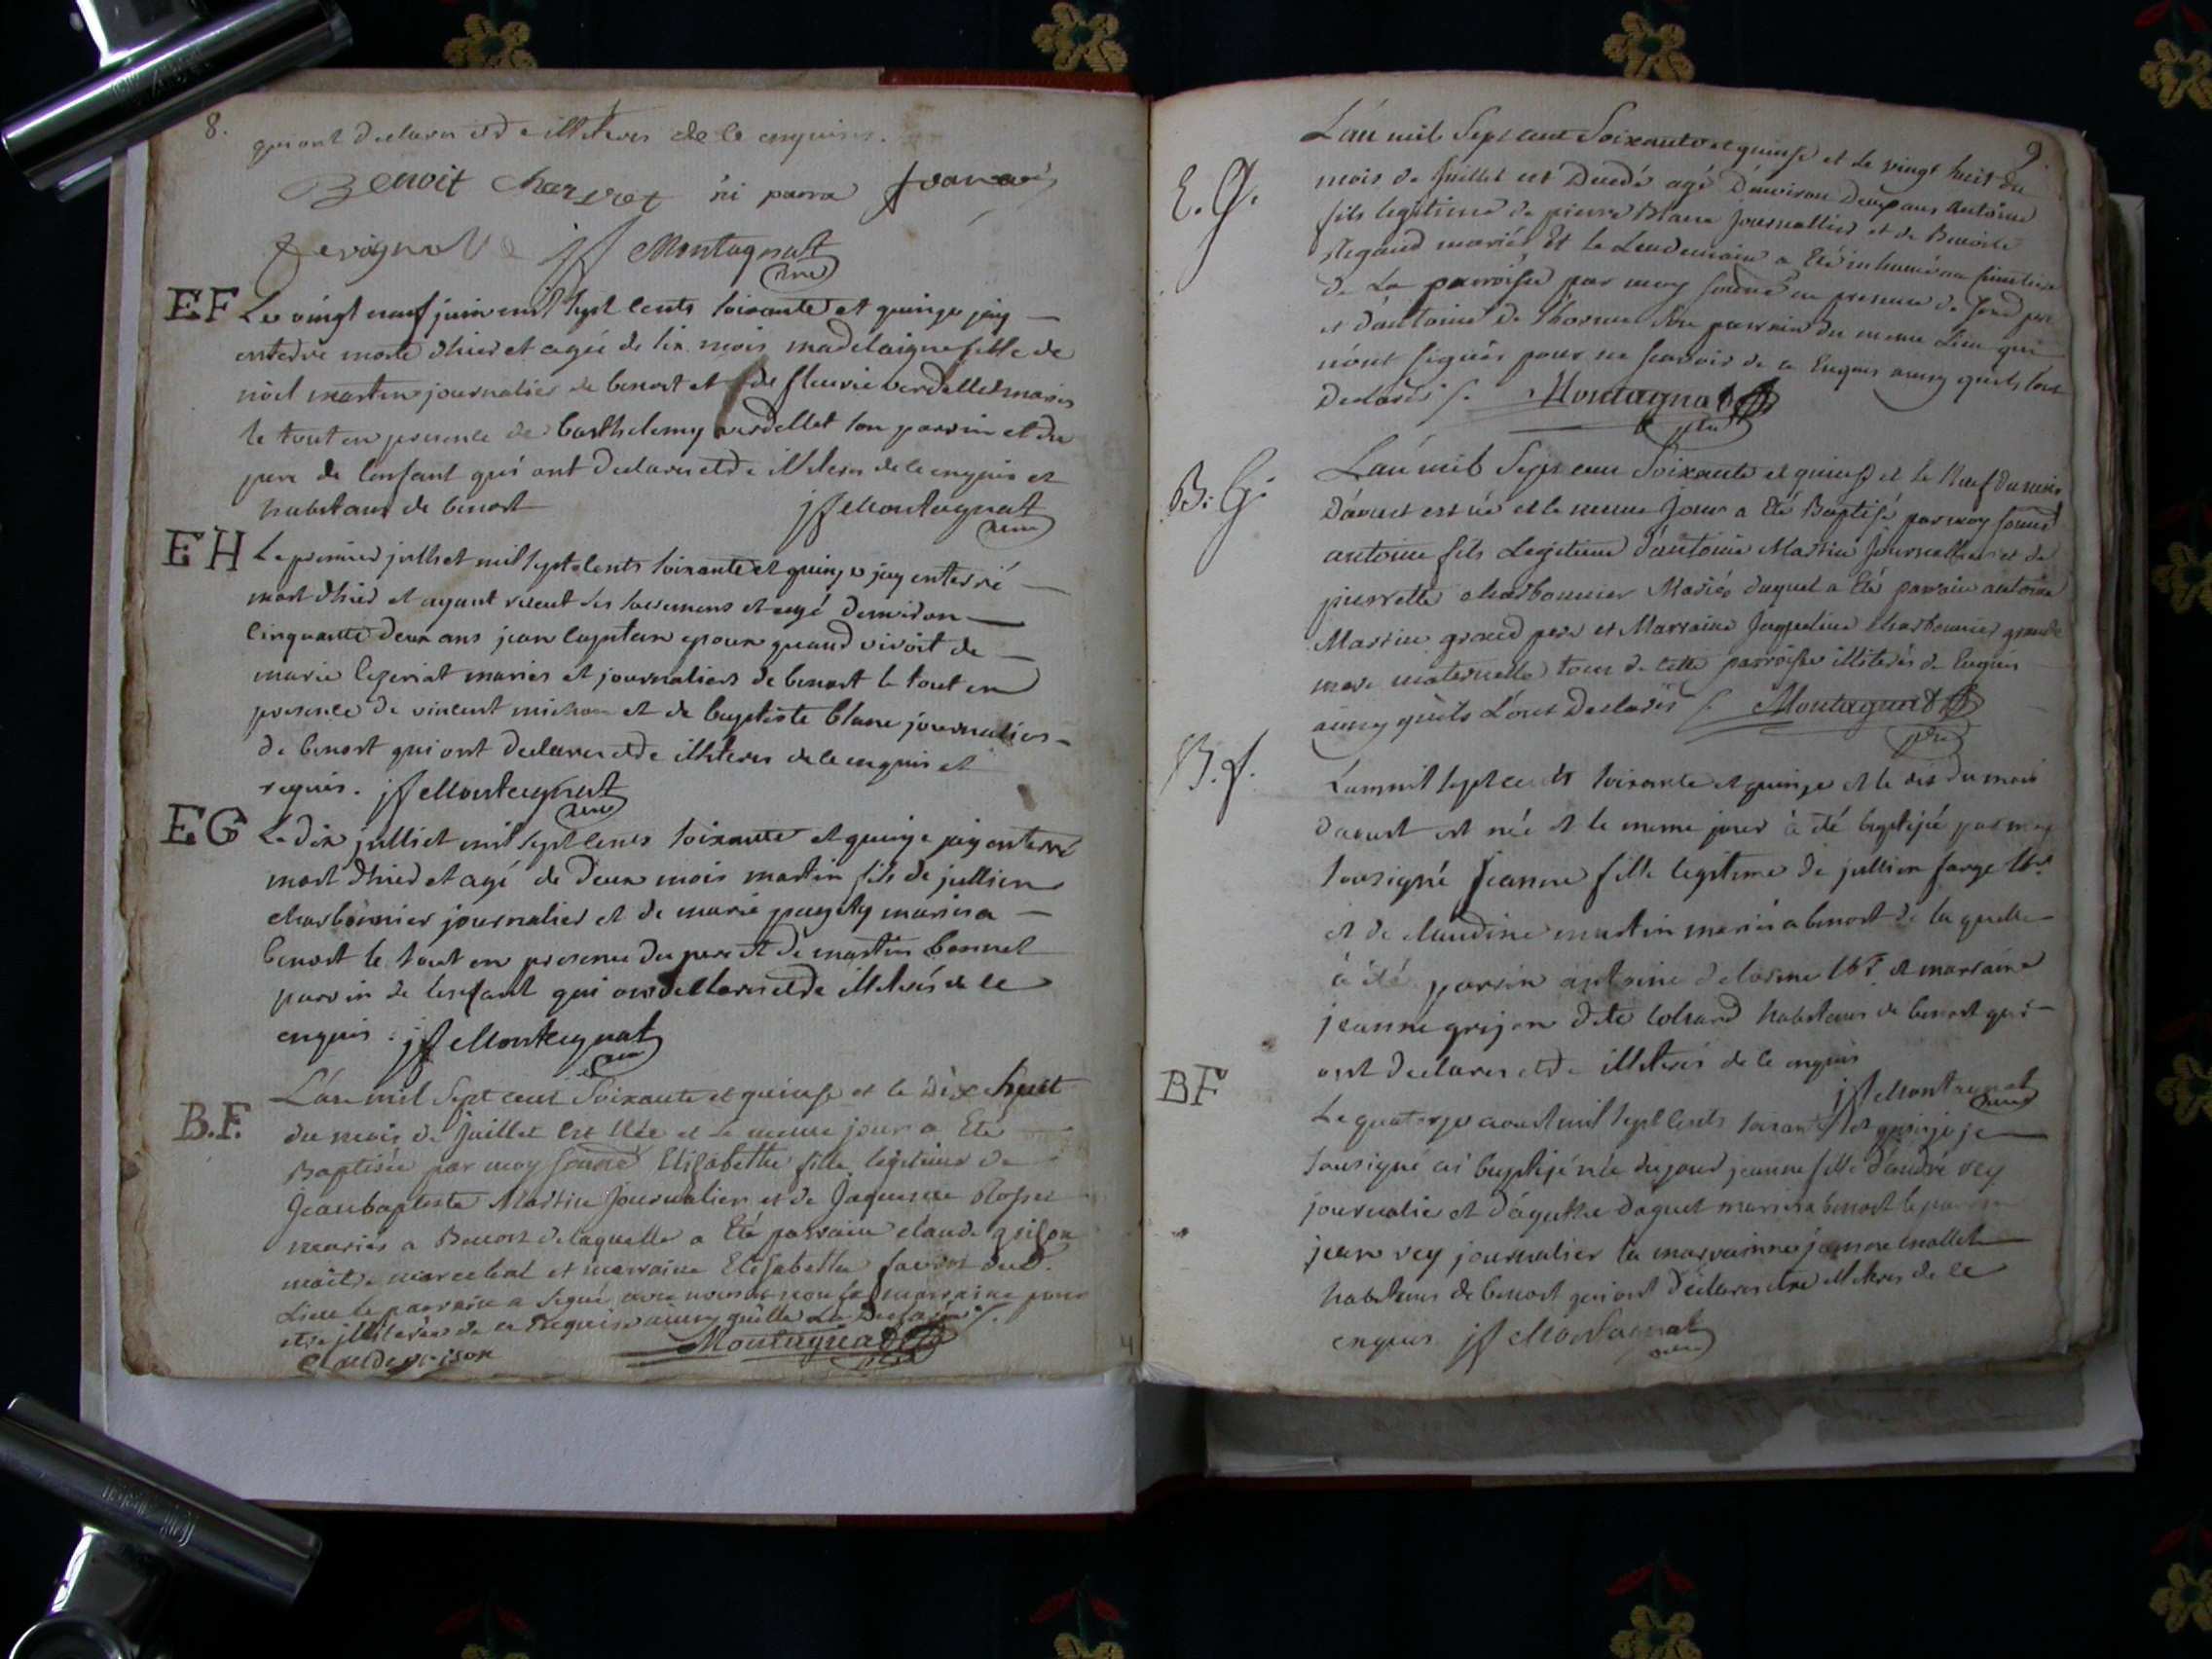 8.
qui ont declares etre illiteres de ce enquis.
Benoit Charvet ni parra
Montagnat
EF Le vingt neuf juin mil sept cents soixante et quinze jay
enterré morte dhier et agée de six mois madelaigne fille de
noel martin journalier de benost et de fleurie verdellet maries
le tout en presence de barthelemy verdellet son parrin et du
pere de lenfant qui ont declares etre illiteres de ce enquis et
habitans de benost jf Montagnat
EH Le premier julliet mil sept cents soixante et quinze jay enterré
mort dhier et ayant receut ses sacremens et agé denviron
cinquante deux ans jean capitan epoux quand vivoit de
marie maries et journaliers de benost le tout en
presence de vincent michon et de baptiste blanc journaliers
de benost qui ont declares etre illiteres de ce enquis et
requis. jf Montagnat
EG Le dix julliet mil sept cents soixante et quinze jay enterré
mort dhier et agé de deux mois martin fils de jullien
charbonnier journalier et de marie maries a
benost le tout en presence du pere et de martin bonnet
parrin de lenfant qui ont declares etre illiterés de ce
enquis. jf Montagnat
B.F. L'an mil Sept cent Soixante et quinse et le Dix huit
du mois de Juillet est Née et le meme jour a Eté
Baptisée par moy soussné Elisabethe fille legitime de
Jean baptiste Martin Journalier et de Jaqueme
mariés a Benost de laquelle a Eté parrain claude grison
maitre marechal et marraine Elisabethe dud.
Lieu le parrain a signé avec nous et non la marraine pour
etre illiterée de ce Enquise ainsy quelle La Declaré /.
claude grison Montagnat
9.
E.G. L'an mil Sept cent Soixante et quinse et le vingt huit du
mois de Juillet est Decedé agé D'environ Deux ans Antoine
fils legitime de pierre Blanc Journallier et de Benoite
Regaud mariés Et le Lendemain a Eté inhumé au simetiere
de La parroisse par moy soussné en presence de
et d'antoine De lhorme son parrain du meme Lieu qui
n'ont signés pour ne scavoir de ce Enquis ainsy quils l'ont
Declarés /. Montagnat
B.G. L'an mil Sept cent Soixante et quinse et le Neuf du mois
D'aoust est né et le meme Jour a Eté Baptisé par moy soussné
antoine fils Legitime d'antoine Martin Journallier et de
pierrette charbonnier Mariés duquel a Eté parrain antoine
Martin grand pere et Marraine Jaqueline charbonnier grande
mere maternelle tous de cette parroisse illiterés de Enquis
ainsy quils L'ont Declarés /. Montagnat
B.f. Lan mil sept cents soixante et quinze et le dix du mois
daoust est née et le meme jour à eté baptizée par moy
sousigné jeanne fille legitime de jullien farge lbr
et de claudine martin mariés a benost de laquelle
à eté parrin antoine delorme lbr et marraine
jeanne grizon dite habitans de benost qui
ont declares etre illiterés de ce enquis
jf Montagnat
BF Le quatorze aoust mil sept cents soixante et quinze je
sousigné ai baptizé née du jour jeanne fille d'andré rey
journalie et d'agathe daguet maries a benost le parrin
jean rey journalier la marrainne jeanne mollet
habitans de benost qui ont declares etre illiteres de ce
enquis jf Montagnat